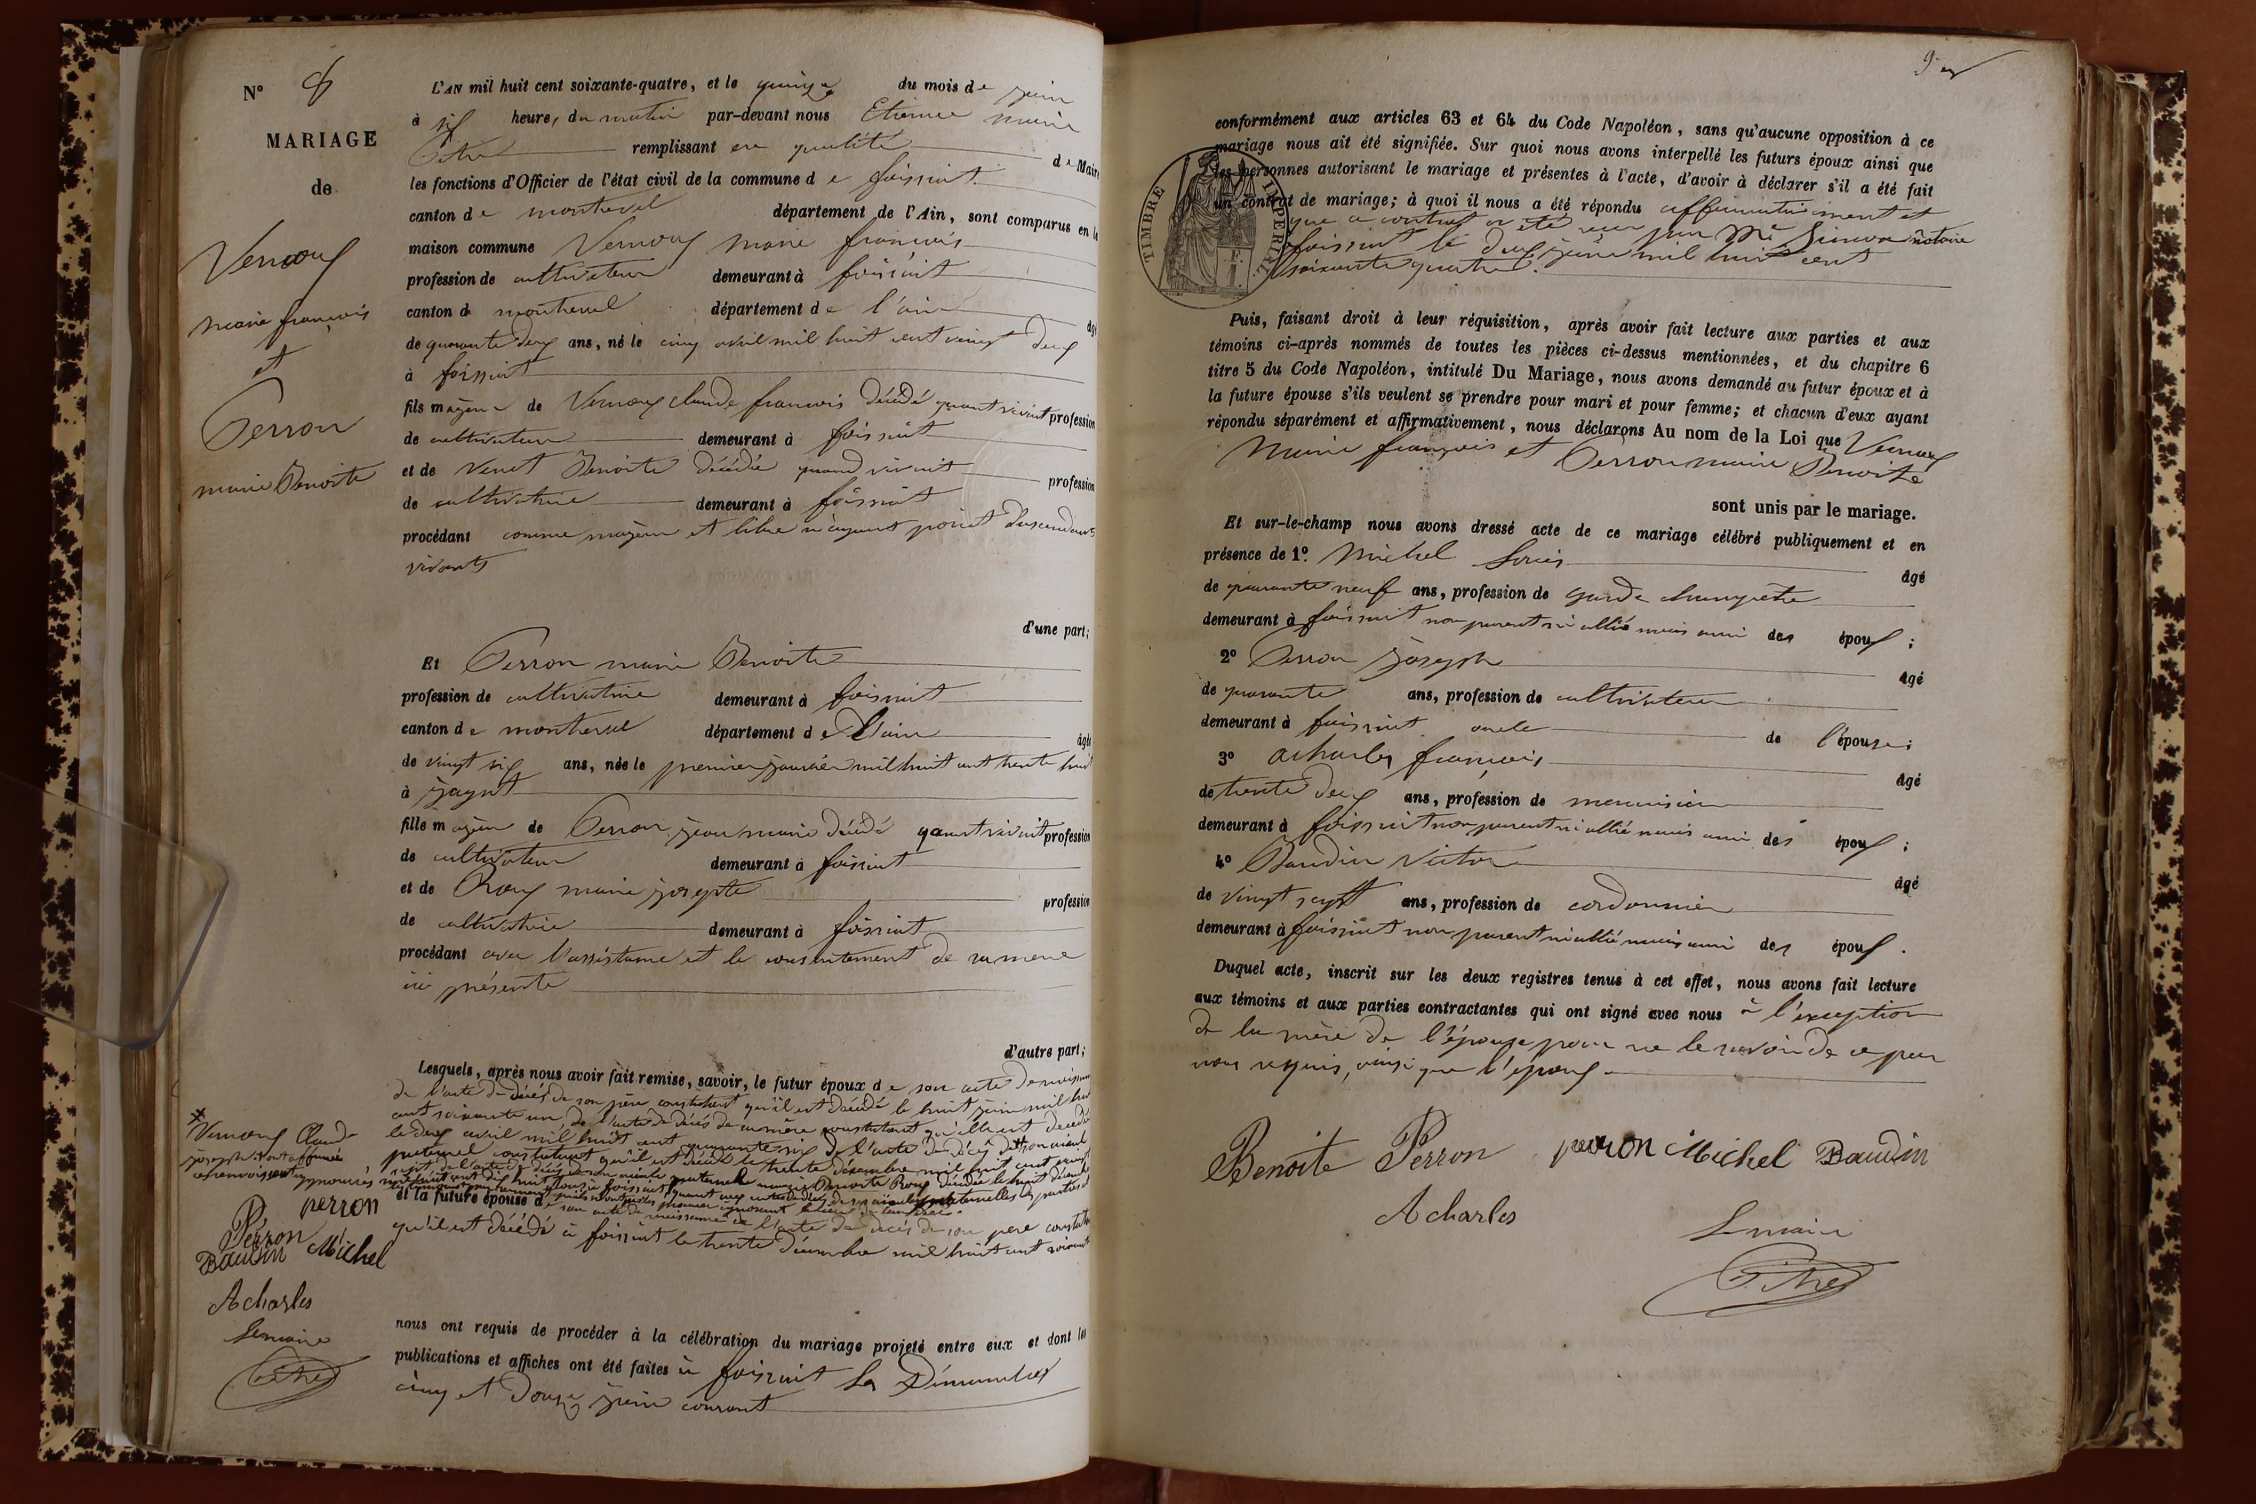 N° 8
MARIAGE
de
Vernoux
marie françois
et
Perron
marie Benoite
L'AN mil huit cent soixante-quatre, et le quinze du mois de juin
à six heures du matin par-devant nous Etienne marie
Pitre remplissant en qualité de Maire
les fonctions d'Officier de l'état civil de la commune de foissiat
canton de montrevel département de l'Ain, sont comparus en la
maison commune Vernoux marie francois
profession de cultivateur demeurant à foissiat
canton de montrevel département de l'ain âgé
de quarante deux ans, né le cinq avril mil huit cent vingt deux
à foissiat
fils majeur de Vernoux claude francois décédé quant vivant profession
de cultivateur demeurant à foissiat
et de Venet Benoite décédée quand vivait profession
de cultivatrice demeurant à foissiat
procédant comme majeur et libre n'ayant point d'ascendants
vivants
d'une part;
Et Perron marie Benoite
profession de cultivatrice demeurant à foissiat
canton de montrevel département de l'ain âgée
de vingt six ans, née le premier janvier mil huit cent trente huit
à jayat
fille majeure de Perron jean marie décédé quant vivait profession
de cultivateur demeurant à foissiat
et de Roux marie josepte profession
de cultivatrice demeurant à foissiat
procédant avec l'assistance et le consentement de sa mere
ici présente
d'autre part;
Lesquels, après nous avoir fait remise, savoir, le futur époux de son acte de naissance
de l'acte de décès de son père constatant qu'il est décédé le huit juin mil huit
cent soixante un, de l'acte de décès de sa mère constatant qu'elle est décédée
le deux avril mil huit cent quarante six de l'acte de décès de son aieul
paternel constatant qu'il est décédé le trente décembre mil huit cent
et la future épouse de son acte de naissance et de l'acte de décès de son pere constatant
qu'il est décédé à foissiat le trente décembre mil huit cent soixante
* Vernoux Claude
joseph
perron
Perron
Baudin Michel
Acharles
Le maire
Pitre
nous ont requis de procéder à la célébration du mariage projeté entre eux et dont les
publications et affiches ont été faites à foissiat les Dimanches
cinq et douze juin courant
9
conformément aux articles 63 et 64 du Code Napoléon, sans qu'aucune opposition à ce
mariage nous ait été signifiée. Sur quoi nous avons interpellé les futurs époux ainsi que
les personnes autorisant le mariage et présentes à l'acte, d'avoir à déclarer s'il a été fait
un contrat de mariage; à quoi il nous a été répondu affirmativement et
que ce contrat a été reçu par Me Simon notaire
foissiat le deux juin mil huit cent
soixante quatre.
TIMBRE IMPERIAL
Puis, faisant droit à leur réquisition, après avoir fait lecture aux parties et aux
témoins ci-après nommés de toutes les pièces ci-dessus mentionnées, et du chapitre 6
titre 5 du Code Napoléon, intitulé Du Mariage, nous avons demandé au futur époux et à
la future épouse s'ils veulent se prendre pour mari et pour femme; et chacun d'eux ayant
répondu séparément et affirmativement, nous déclarons Au nom de la Loi que Vernoux
Marie françois et Perron marie Benoite
sont unis par le mariage.
Et sur-le-champ nous avons dressé acte de ce mariage célébré publiquement et en
présence de 1°. Michel Louis âgé
de quarante neuf ans, profession de garde champetre
demeurant à foissiat non parent ni allié mais ami des époux;
2° Perron joseph âgé
de quarante ans, profession de cultivateur
demeurant à foissiat oncle de l'épouse;
3° acharles françois âgé
de trente deux ans, profession de menuisier
demeurant à foissiat non parent ni allié mais ami des époux;
4° Baudin Victor âgé
de vingt sept ans, profession de cordonnier
demeurant à foissiat non parent ni allié mais ami des époux.
Duquel acte, inscrit sur les deux registres tenus à cet effet, nous avons fait lecture
aux témoins et aux parties contractantes qui ont signé avec nous à l'exception
de la mère de l'épouse pour ne le savoir de ce par
nous requis, ainsi que l'époux
Benoite Perron perron Michel Baudin
Acharles
Le maire
Pitre